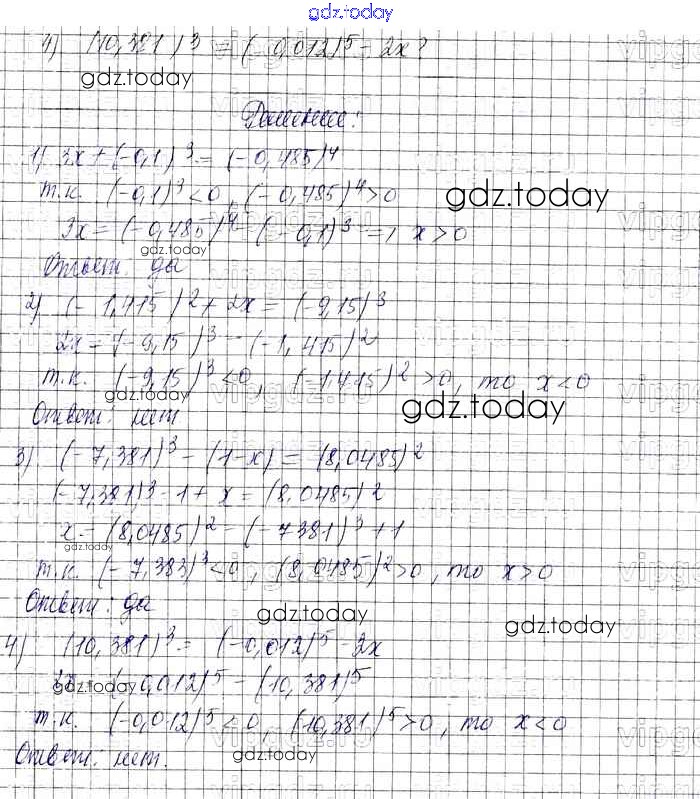 gdz.today
4) (10,381)³ = (-0,012)⁵ - 2x?
gdz.today
Решение:
1) 3x + (-0,1)³ = (-0,485)⁴
т.к. (-0,1)³ < 0, (-0,485)⁴ > 0
gdz.today
3x = (-0,485)⁴ - (-0,1)³ => x > 0
gdz.today
Ответ: да
2) (-1,415)² + 2x = (-9,15)³
2x = (-9,15)³ - (-1,415)²
т.к. (-9,15)³ < 0, (-1,415)² > 0, то x < 0
gdz.today
gdz.today
Ответ: нет
3) (-7,381)³ - (1-x) = (8,0485)²
(-7,381)³ - 1 + x = (8,0485)²
x = (8,0485)² - (-7381)³ + 1
gdz.today
т.к. (-7,383)³ < 0, (8,0485)² > 0, то x > 0
Ответ: да
gdz.today
gdz.today
4) (10,381)³ = (-0,012)⁵ - 2x
2x = (-0,012)⁵ - (10,381)⁵
gdz.today
т.к. (-0,012)⁵ < 0, (10,381)⁵ > 0, то x < 0
Ответ: нет.
gdz.today